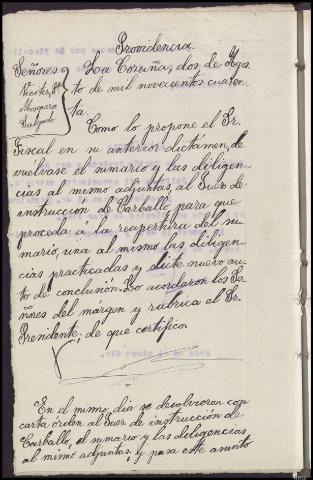 Providencia.
Señores
Mosquera
Salgado
La Coruña, dos de Agos
to de mil novecientos cuaren
ta.
Como lo propone el Sr.
Fiscal en su anterior dictámen, de
vuélvase el sumario y las diligen
cias al mismo adjuntas, al Juez de
instruccion de Carballo, para que
proceda á la reapertura del su
mario, una al mismo las diligen
cias practicadas y dicte nuevo au
to de conclusión. Lo acordaron los Se
ñores del márgen y rubrica el Sr.
Presidente; de que certifico.
En el mismo dia se devolvieron con
carta órden al Juez de instrucción de
Carballo, el sumario y las diligencias
al mismo adjuntas, y pasa este asunto